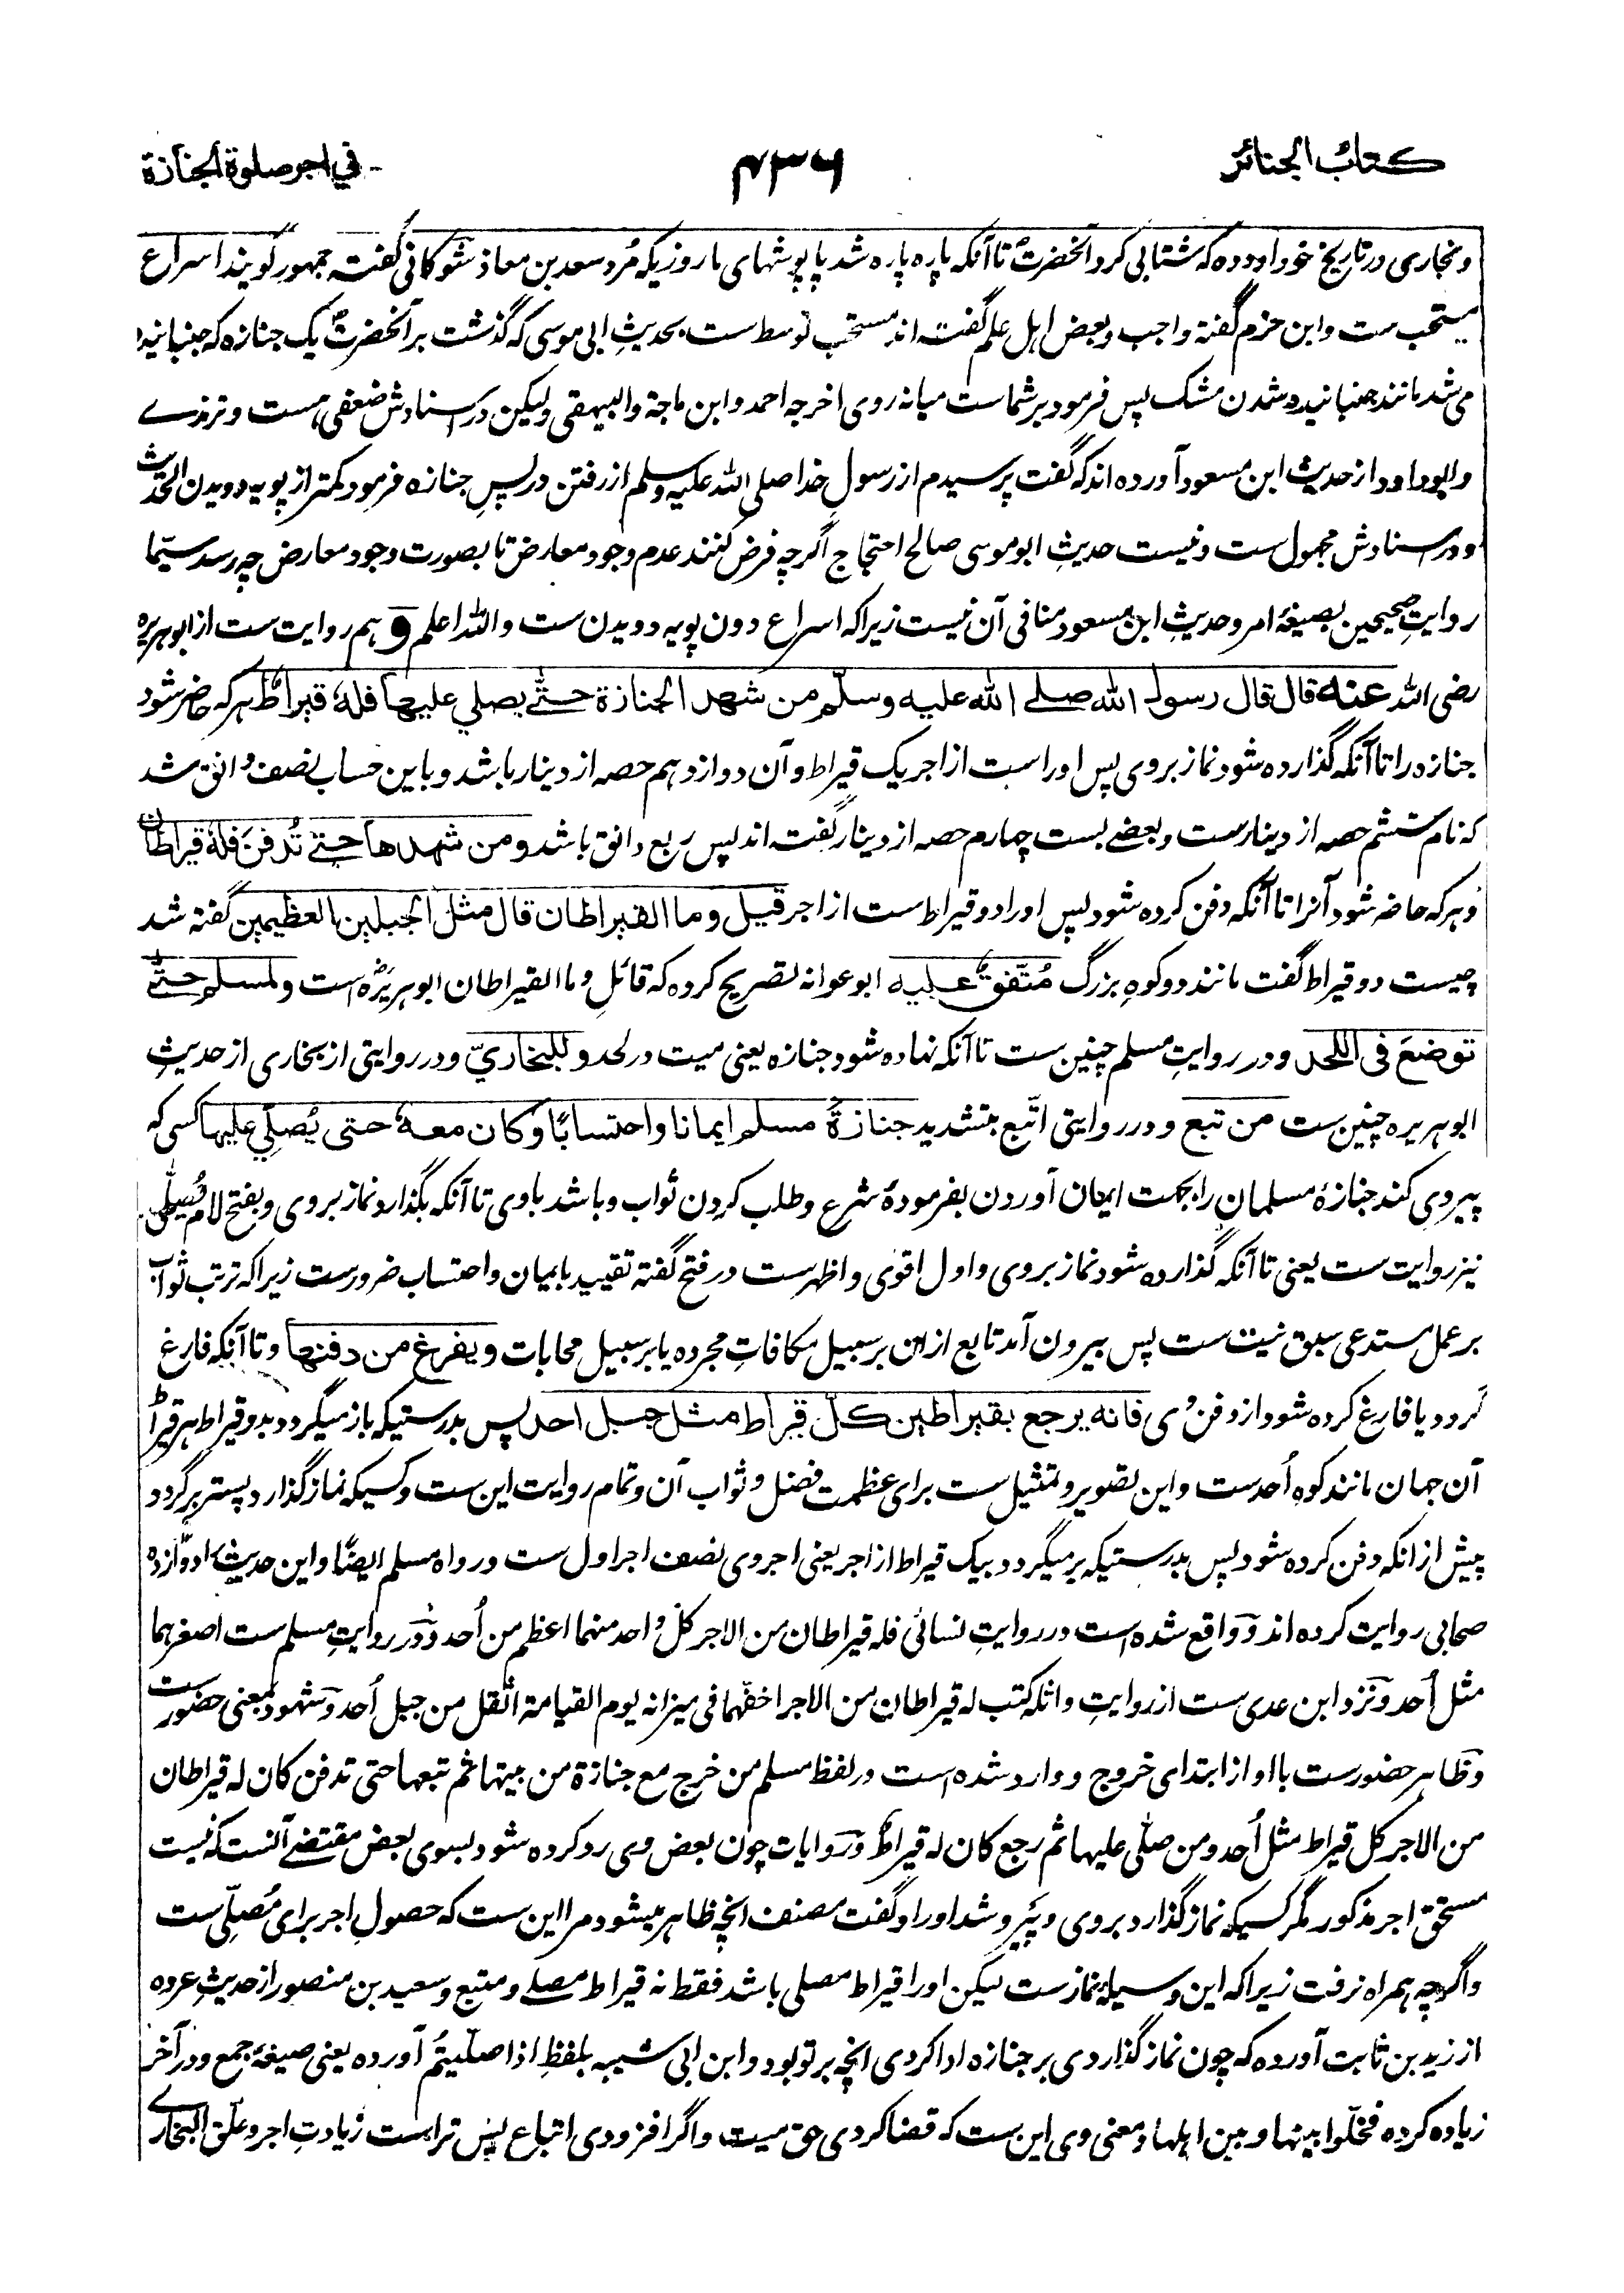 كتاب الجنائز
۴۳۶
في اجر صلوة الجنازة
و بخاری در تاریخ خود آورده که شتابی کرد آنحضرتؐ تا آنکه پاره پاره شد پاپوشهای ما روزیکه مُرد سعد بن معاذ شوکانی گفته جمهور گویند اسراع
مستحب ست و ابن حزم گفته واجب و بعض اہل علم گفته اند مستحب توسط ست بحدیثِ ابی موسی که گذشت بر آنحضرتؐ یک جنازه که جنبانیده
می شد مانند جنبانیده شدن مشک پس فرمود بر شماست میانه روی اخرجه احمد و ابن ماجة والبیهقی ولیکن در اسنادش ضعفی ہست و ترمذے
و ابو داود از حدیث ابن مسعود آورده اند که گفت پرسیدم از رسولِ خدا صلی اللہ علیہ وسلم از رفتن در پسِ جنازه فرمود کمتر از پویه دویدن الحدیث
و در اسنادش مجهول ست و نیست حدیثِ ابو موسی صالح احتجاج اگرچه فرض کنند عدم وجود معارض تا بصورت وجود معارض چه رسد سیّما
روایتِ صحیحین بصیغهٔ امر و حدیثِ ابن مسعود منافی آن نیست زیرا که اسراع دون پویه دویدن ست واللہ اعلم و ہم روایت ست از ابوہریره
رضی اللہ عنه قال قال رسول الله صلے الله علیه وسلّم من شهد الجنازة حتّے یصلي علیها فلهٗ قیراطٌ ہر که حاضر شود
جنازه را تا آنکه گذارده شود نماز بروی پس او راست از اجر یک قیراط و آن دوازدہم حصه از دینار باشد و باین حساب نصف دانق شد
که نام ششم حصه از دینارست و بعضے بست چهارم حصه از دینار گفته اند پس ربع دانق باشد ومن شهدها حتے تُدفنَ فلهٗ قیراطان
و ہر که حاضر شود آنرا تا آنکه دفن کرده شود پس او را دو قیراط ست از اجر قیل وما القیراطان قال مثل الجبلین العظیمین گفته شد
چیست دو قیراط گفت مانند دو کوهِ بزرگ مُتّفقٌ علیه ابو عوانه تصریح کرده که قائلِ وما القیراطان ابوہریرهؓ است ولمسلم حتّے
توضعَ فی اللحد و در روایتِ مسلم چنین ست تا آنکه نهاده شود جنازه یعنی میت در لحد و للبخاريّ و در روایتی از بخاری از حدیثِ
ابوہریره چنین ست من تبع و در روایتی اتّبع بتشدید جنازةَ مسلم ایمانا واحتسابًا وکان معهٗ حتی یُصلّي علیها کسی که
پیروی کند جنازهٔ مسلمان را بجهت ایمان آوردن بفرمودهٔ شرع و طلب کردن ثواب و باشد باوی تا آنکه بگذارد نماز بروی و بفتح لام یُصلّٰی
نیز روایت ست یعنی تا آنکه گذارده شود نماز بروی و اول اقوی و اظهرست در فتح گفته تقیید بایمان و احتساب ضرورست زیرا که ترتب ثواب
بر عمل مستدعی سبق نیت ست پس بیرون آمد تابع ازان بر سبیل مکافاتِ مجرده یا بر سبیل محابات ویفرغ من دفنها و تا آنکه فارغ
گردد یا فارغ کرده شود از دفن وی فانه یرجع بقیراطین کلّ قیراط مثل جبل احد پس بدرستیکه باز میگردد بدو قیراط ہر قیراط
آن جهان مانند کوهِ اُحدست و این تصویر و تمثیل ست برای عظمت فضل و ثواب آن و تمام روایت این ست و کسیکه نماز گذارد پستر برگردد
پیش ازانکه دفن کرده شود پس بدرستیکه برمیگردد بیک قیراط از اجر یعنی اجر وی نصف اجر اول ست و رواه مسلم ایضًا و این حدیث را دوازده
صحابی روایت کرده اند و واقع شده است در روایتِ نسائی فله قیراطان من الاجر کل واحد منهما اعظم من اُحد و در روایتِ مسلم ست اصغرہما
مثل اُحد و نزد ابن عدی ست از روایتِ واثله کتب له قیراطان من الاجر اخفّهما فی میزانه یوم القیامة اثقل من جبل اُحد و شهود بمعنی حضور ست
و ظاہر حضورست بااو از ابتدای خروج و وارد شده است در لفظ مسلم من خرج مع جنازة من بیتها ثم تبعها حتی تدفن کان له قیراطان
من الاجر کل قیراط مثل اُحد ومن صلّٰی علیها ثم رجع کان له قیراطٌ و روایات چون بعض وی رد کرده شود بسوی بعض مقتضے آنست که نیست
مستحق اجر مذکور مگر کسیکه نماز گذارد بروی و پَیرو شد او را و گفت مصنف انچه ظاہر میشود مرا این ست که حصولِ اجر برای مُصلّی ست
و اگرچه ہمراه نرفت زیرا که این وسیلهٔ نمازست لیکن او را قیراط مصلی باشد فقط نه قیراط مصلے و متبع و سعید بن منصور از حدیثِ عروه
از زید بن ثابت آورده که چون نماز گذاردی بر جنازه ادا کردی انچه بر تو بود و ابن ابی شیبه بلفظِ اذا صلّیتُم آورده یعنی صیغهٔ جمع و در آخر
زیاده کرده فخلّوا بینها و بین اہلها و معنی وی این ست که قضا کردی حق میت و اگر افزودی اتباع پس تراست زیادتِ اجر و علّق البخارے